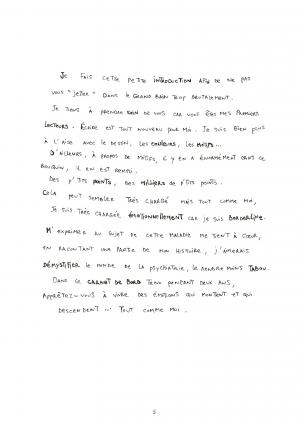 Je fais cette petite introduction afin de ne pas
vous "jeter" dans le grand bain trop brutalement.
Je tiens à prendre soin de vous car vous êtes mes premiers
lecteurs. Écrire est tout nouveau pour moi. Je suis bien plus
à l'aise avec le dessin, les couleurs, les motifs...
D'ailleurs, à propos de motifs, il y en a énormément dans ce
bouquin, il en est rempli.
Des p'tits points, des milliers de p'tits points.
Cela peut sembler très chargé mais tout comme moi,
je suis très chargée émotionnellement car je suis borderline.
M'exprimer au sujet de cette maladie me tient à cœur,
en racontant une partie de mon histoire, j'aimerais
démystifier le monde de la psychiatrie, le rendre moins tabou.
Dans ce carnet de bord tenu pendant deux ans,
apprêtez-vous à vivre des émotions qui montent et qui
descendent ... tout comme moi.
5